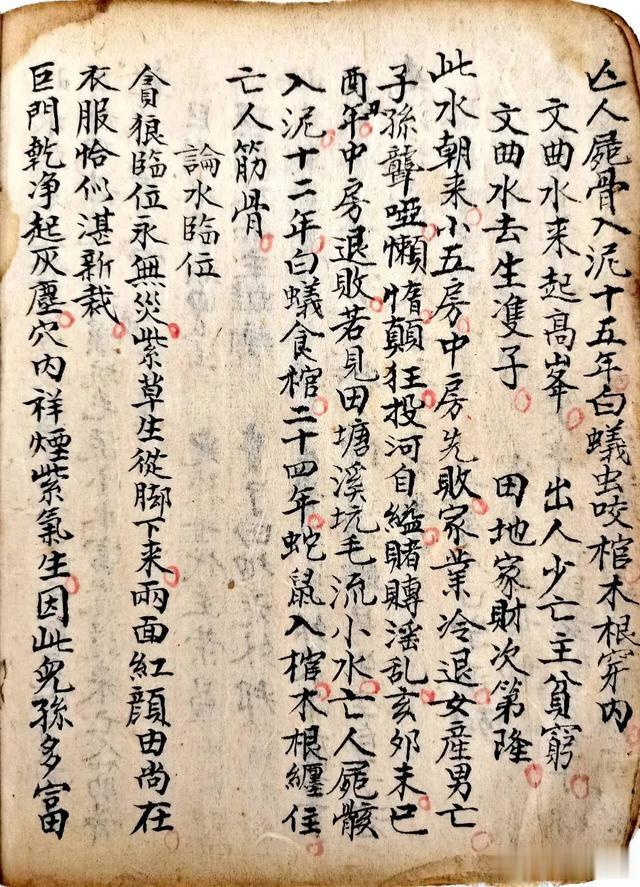 亾人屍骨入泥十五年白蟻虫咬棺木根穿内
文曲水来起高峯 出人少亡主貧窮
文曲水去生隻子 田地家財次第隆
此水朝来小五房中房先敗家業冷退女產男亡
子孫聾啞懶惰顛狂投河自縊賭賻淫乱亥夘未巳
酉年中房退敗若見田塘溪坑毛流小水亡人屍骸
入泥十二年白蟻食棺二十四年蛇鼠入棺木根纏住
亡人筋骨
論水臨位
貪狼臨位永無災紫草生從脚下来兩面紅顔由尚在
衣服恰似湛新栽
巨門乾净起灰塵穴内祥煙紫氣生因此兒孫多富